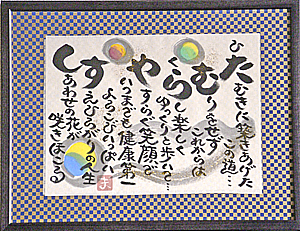 ひたむきに築きあげた
この道…
むりをせず
これからは
くらし楽しく
ゆっくりと歩いて…
やすらぐ笑顔で
いつまでも健康第一
よろこびおおい
すえひろがりの人生
しあわせの花が
咲きほこる